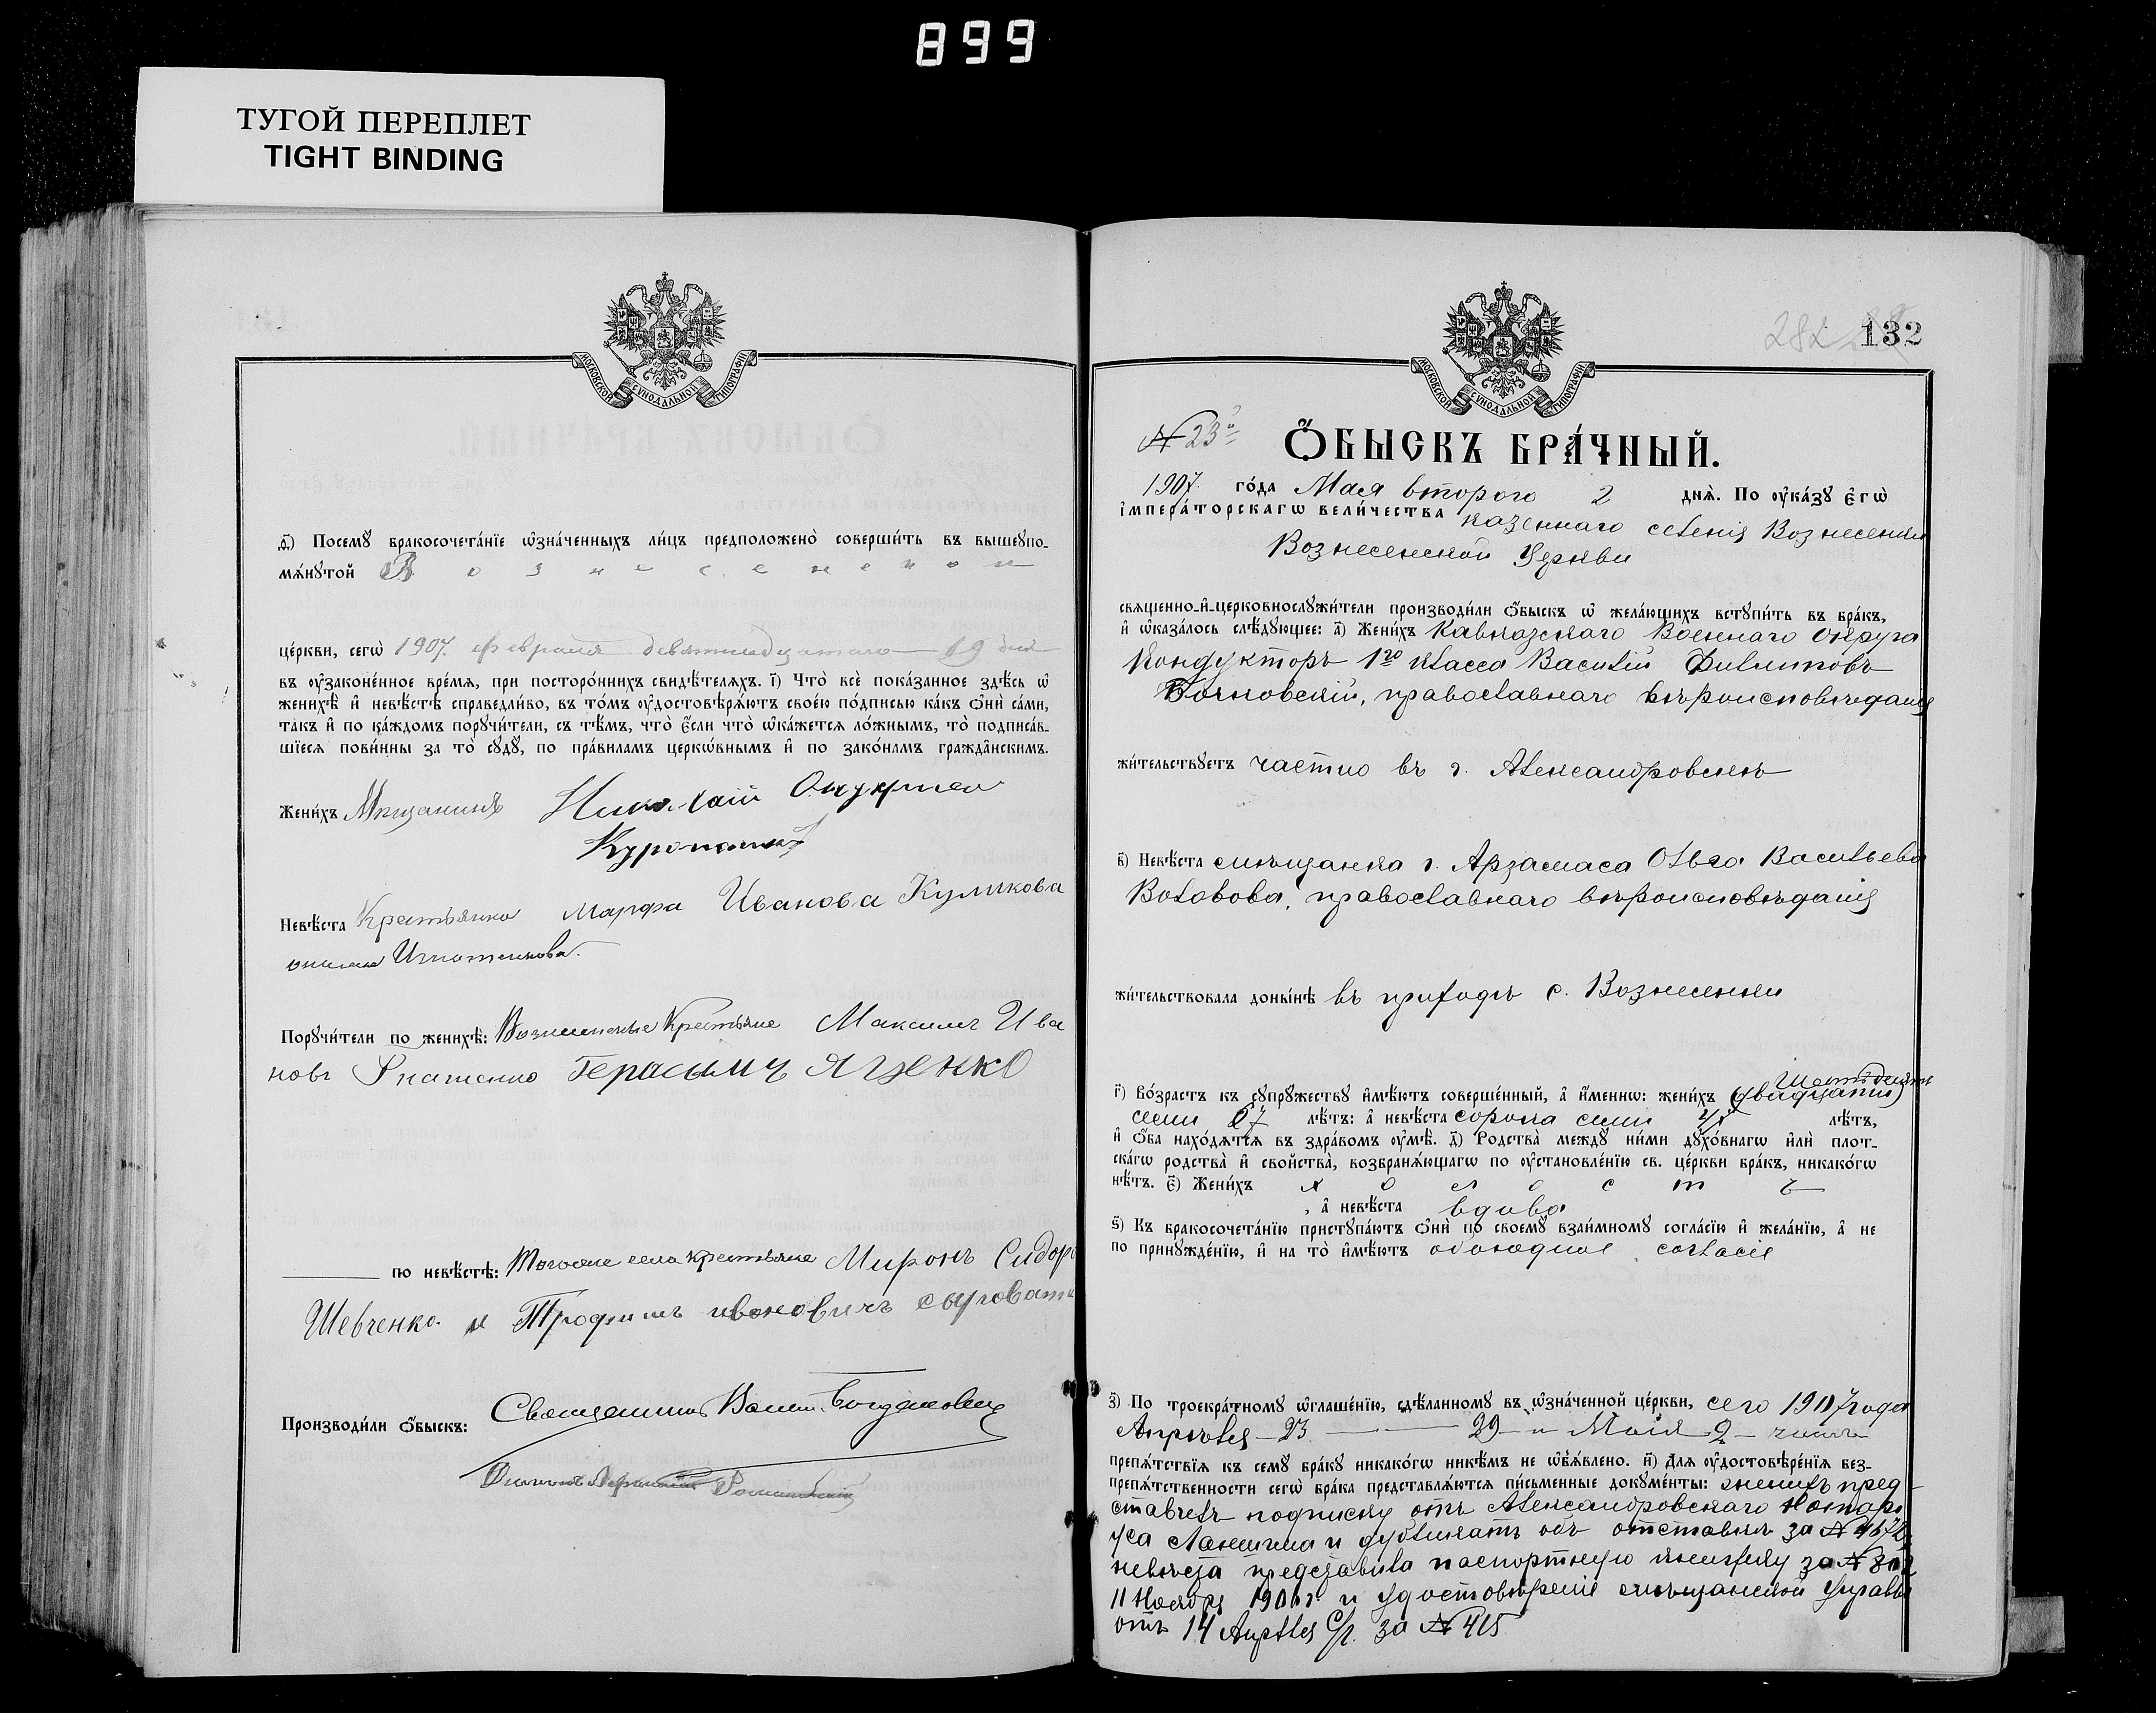 899
ТУГОЙ ПЕРЕПЛЕТ
TIGHT BINDING
МОСКОВСКОЙ СѴНОДАЛЬНОЙ ТИПОГРАФІИ
ѳ҃) Посемꙋ бракосочета́нїе ѡ҆зна́ченныхъ ли́цъ предположено̀ соверши́ть въ вышеꙋпо-
мѧ́нꙋтой Вознесенской
це́ркви, сегѡ̀ 1907. февраля девятнадцатаго — 19 дня
въ ѹ҆зако́ненное вре́мѧ, при посторо́ннихъ свидѣ́телѧхъ. і҃) Что̀ всѐ пока́занное здѣ́сь ѡ҆
женихѣ̀ и҆ невѣ́стѣ справедли́во, въ то́мъ ѹ҆достовѣрѧ́ютъ свое́ю по́дписью ка́къ ѻ҆нѝ са́ми,
та́къ и҆ по ка́ждомъ порꙋчи́тели, съ тѣ́мъ, что̀ є҆́сли что̀ ѡ҆ка́жетсѧ ло́жнымъ, то̀ подписа́в-
шїесѧ пови́нны за то̀ сꙋдꙋ̀, по пра́виламъ церко́внымъ и҆ по зако́намъ гражда́нскимъ.
Жени́хъ Мѣщанинъ Николай
Невѣ́ста Крестьянка Марфа Иванова Куликова
Порꙋчи́тели по женихѣ̀: Вознесенскіе Крестьяне Максимъ Ива
новъ Герасымъ Яценко
по невѣ́стѣ: Тогоже села крестьяне Миронъ Сидоро
Шевченко и Трофимъ ивановичъ сыровать
Производи́ли ѻ҆́быскъ: Священникъ Богдановичъ
МОСКОВСКОЙ СѴНОДАЛЬНОЙ ТИПОГРАФІИ
282 132
№ 23й
Ѻ҆БЫСКЪ БРА́ЧНЫЙ.
1907. го́да Мая второго 2 днѧ̀. По ѹ҆ка́зꙋ є҆гѡ̀
і҆мпера́торскагѡ вели́чества казеннаго селенія Вознесенки
Вознесенской Церкви
свѧще́нно-и҆-церковнослꙋжи́тели производи́ли ѻ҆́быскъ ѡ҆ жела́ющихъ встꙋпи́ть въ бра́къ,
и҆ ѡ҆каза́лось слѣ́дꙋющее: а҃) Жени́хъ Кавказскаго Военнаго Округа
Кондукторъ 1го класса Василій Филиповъ
православнаго вѣроисповѣданія
жи́тельствꙋетъ частно въ г. Александровскѣ
в҃) Невѣ́ста мѣщанка г. Арзамаса Ольга Васильева
православнаго вѣроисповѣданія
жи́тельствовала доны́нѣ въ приходѣ с. Вознесенки
г҃) Во́зрастъ къ сꙋпрꙋ́жествꙋ и҆мѣ́ютъ соверше́нный, а҆ и҆́меннѡ: жени́хъ (двадцати) Шестьдесятъ
семи 67 лѣ́тъ: а҆ невѣ́ста сорока семи 47 лѣ́тъ,
и҆ ѻ҆́ба нахо́дѧтсѧ въ здра́вомъ ѹ҆мѣ̀. д҃) Родства̀ междꙋ ни́ми дꙋхо́внагѡ и҆лѝ плот-
ска́гѡ родства̀ и҆ свойства̀, возбранѧ́ющагѡ по ѹ҆становле́нїю св. це́ркви бра́къ, никако́гѡ
нѣ́тъ. є҃) Жени́хъ холостъ
, а҆ невѣ́ста вдова
ѕ҃) Къ бракосочета́нїю пристꙋпа́ютъ ѻ҆нѝ по своемꙋ̀ взаи́мномꙋ согла́сїю и҆ жела́нїю, а҆ не
по принꙋжде́нїю, и҆ на то̀ и҆мѣ́ютъ обоюдное согласіе
з҃) По троекра́тномꙋ ѡ҆глаше́нїю, сдѣ́ланномꙋ въ ѡ҆зна́ченной це́ркви, сего 1907 года
Апрѣля — 23 — 29 — и Мая — 2 — числъ
препѧ́тствїѧ къ семꙋ̀ бра́кꙋ никако́гѡ никѣ́мъ не ѡ҆бъѧ́влено. и҃) Длѧ ѹ҆достовѣре́нїѧ без-
препѧ́тственности сегѡ̀ бра́ка представлѧ́ютсѧ пи́сьменные докꙋме́нты: женихъ пред-
ставилъ подписку отъ Александровскаго Нотарі
уса и дубликатъ объ отставкѣ за №
невѣста представила паспортную книжку за №
11 Ноября и удостовѣреніе мѣщанской Управы
отъ 14 Апрѣля с/г. за № 415